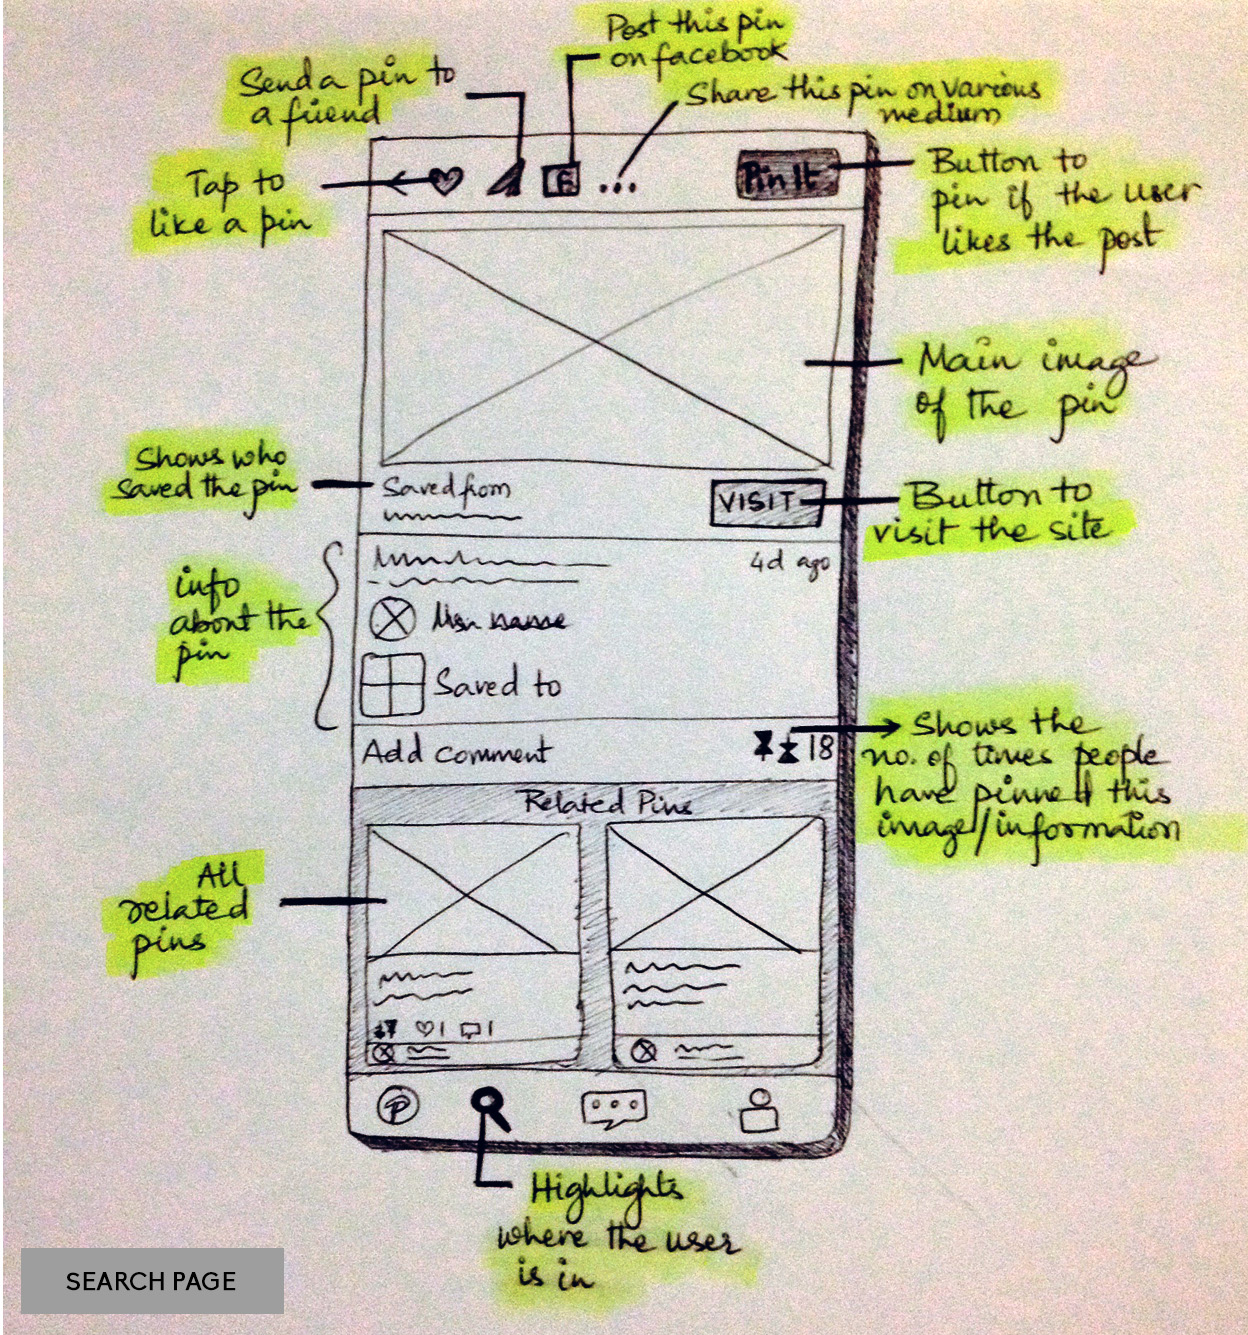 Post this pin
on facebook
Send a pin to
a friend
Share this pin on various
medium
Tap to
like a pin
F
...
Pin It
Button to
pin if the user
likes the post
Main image
of the pin
Shows who
saved the pin
Saved from
VISIT
Button to
visit the site
info
about the
pin
4d ago
name
Saved to
Add comment
18
Shows the
no. of times people
have pinned this
image/information
Related Pins
All
related
pins
1
1
P
Highlights
where the user
is in
SEARCH PAGE